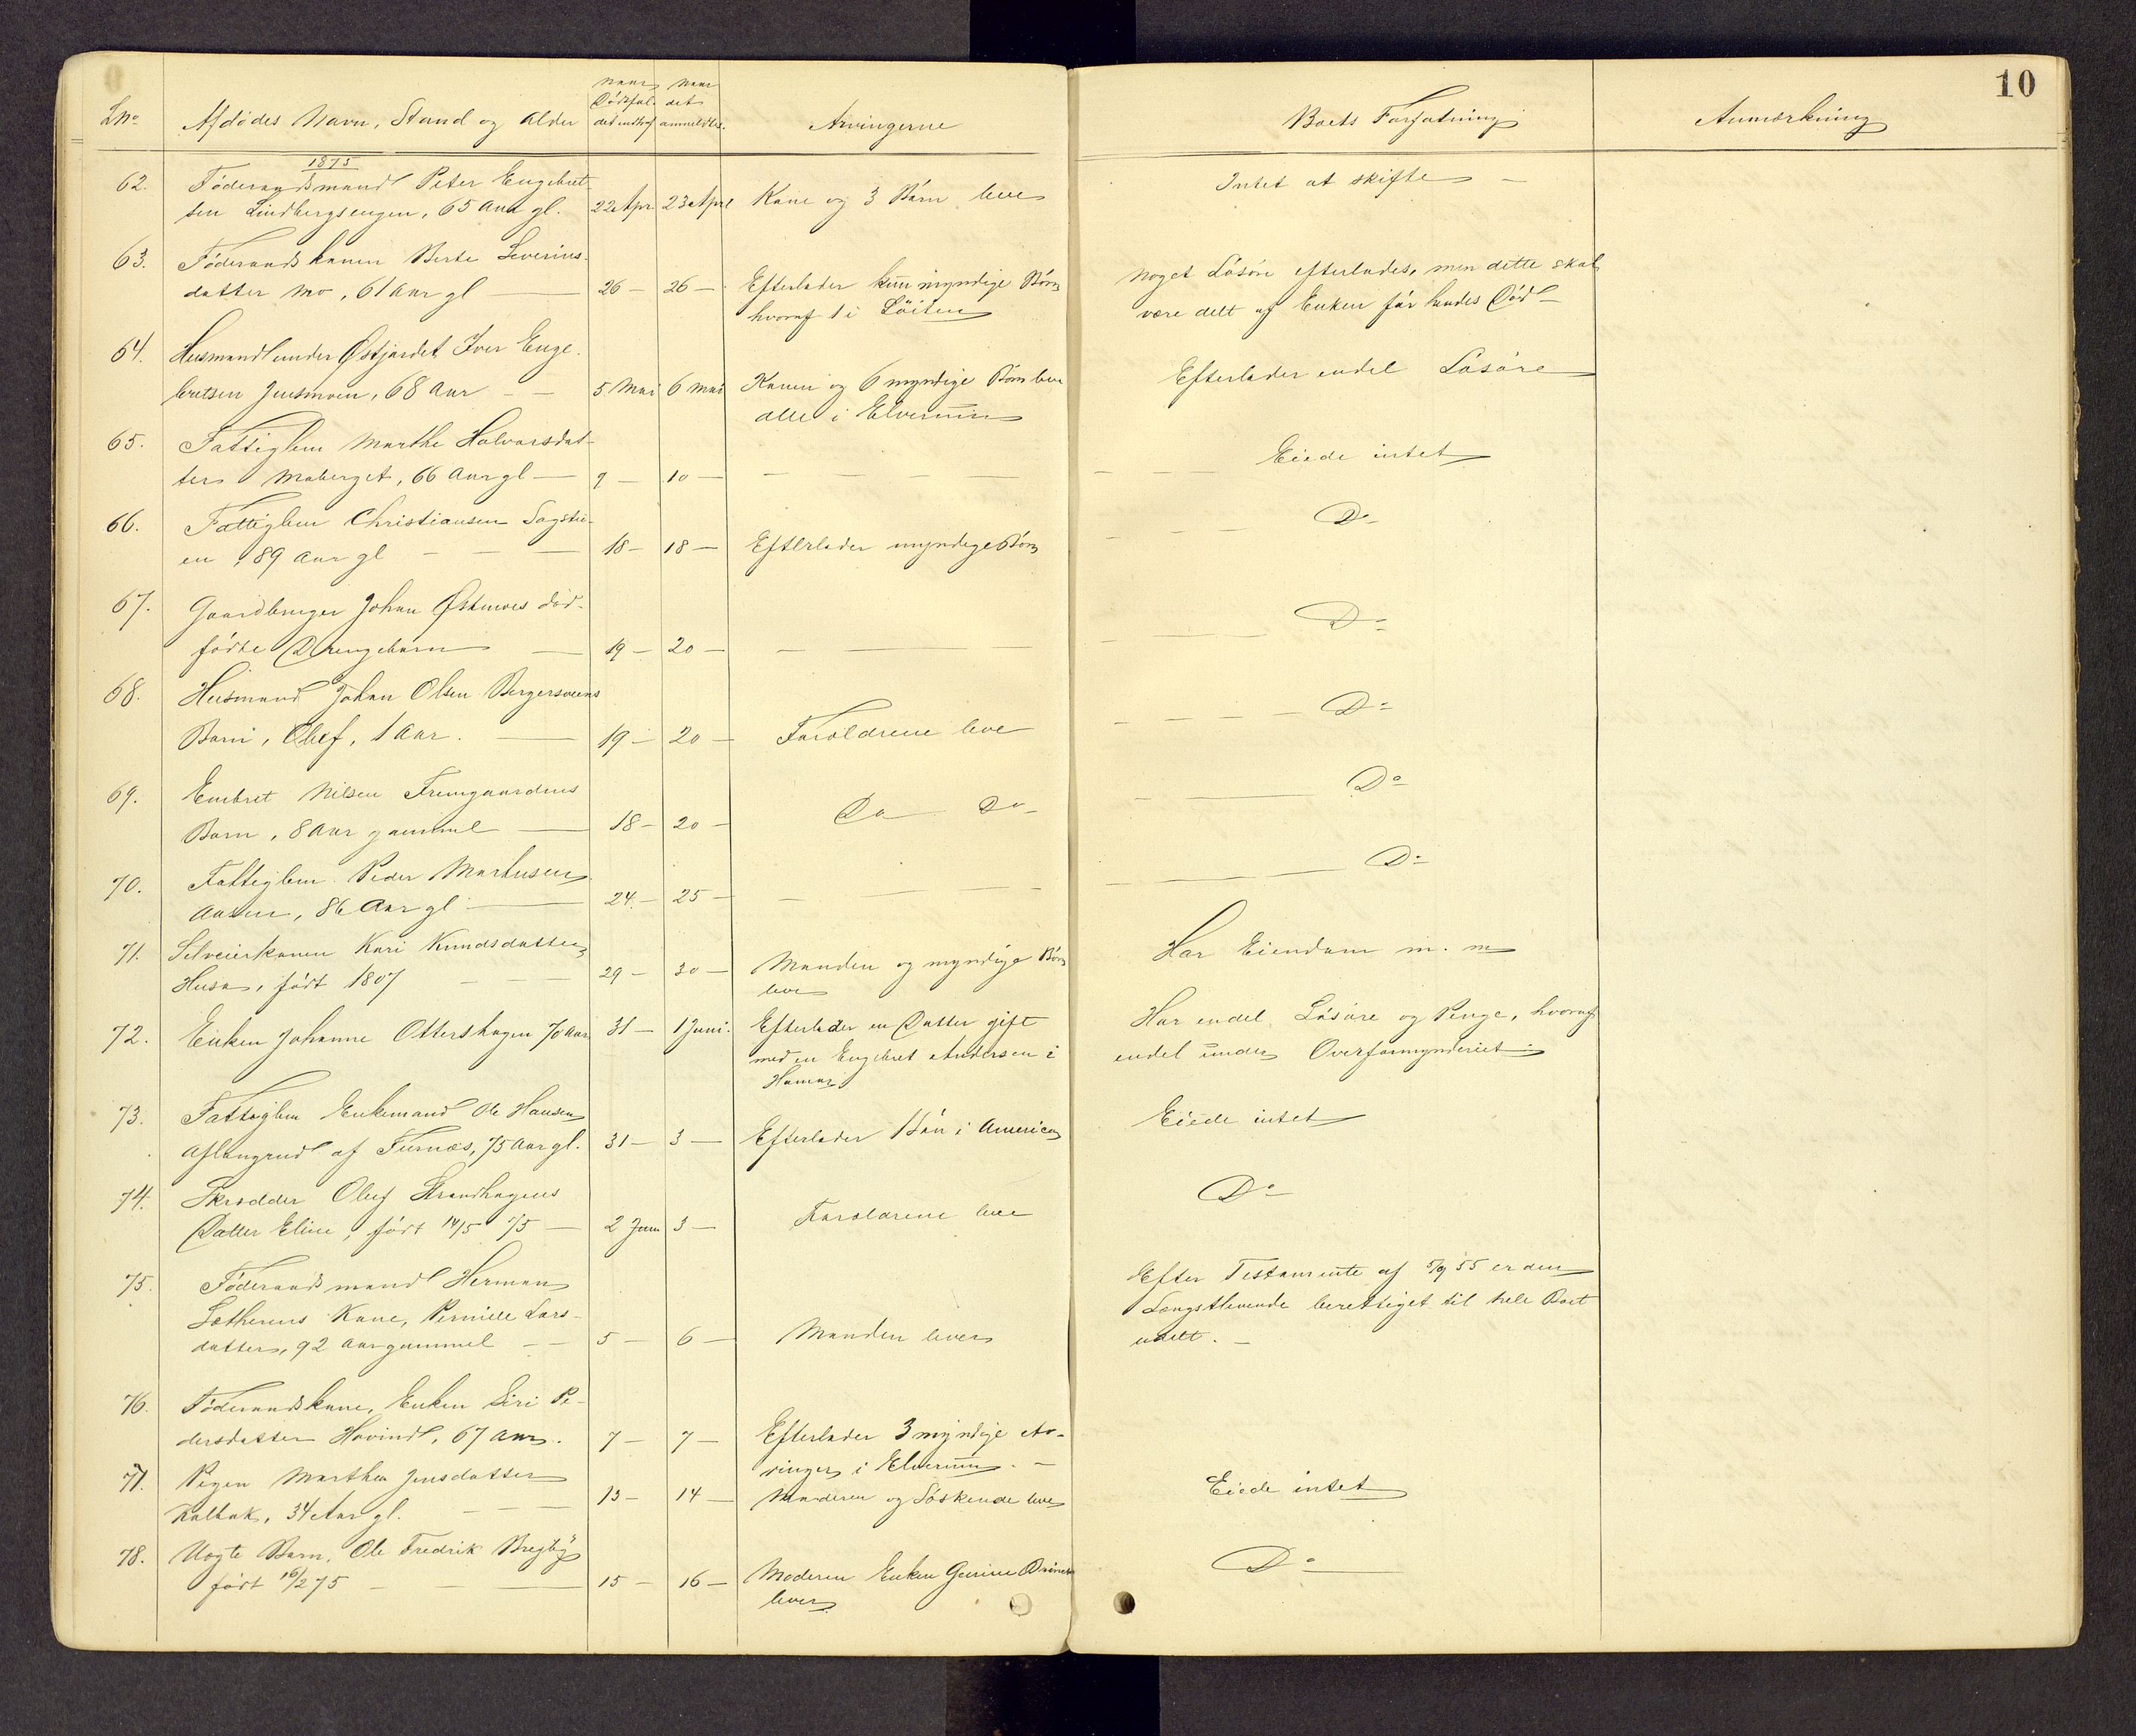 10
LNo Afdödes Navn, Stand og Alder naar Dödsfaldet indtraf naar det anmeldtes. Arvingerne Boets Forfatning Anmærkning
1875
62. Föderaadsmand Peter Engebret-
sen Lindbergsengen, 65 Aar gl. 22 Apr. 23 April Kone og 3 Börn leve Intet at skifte —
63. Föderaadskonen Berte Severins-
datter Mo, 61 Aar gl — 26 — 26 — Efterlader kun myndige Börn
hvoraf 1 i Löiten
Noget Lösöre efterlades, men dette skal
være delt af Enken för hendes Död —
64. Husmand under Østjordet Iver Enge-
bretsen Jensmoen, 68 Aar — — 5 Mai 6 Mai Konen og 6 myndige Börn leve
alle i Elverum
Efterlader endel Lösöre
65. Fattiglem Marthe Halvorsdat-
ter Moberget, 66 Aar gl — 9 — 10 — — — — — Eiede intet
66. Fattiglem Christiansen Sagstu-
en, 89 Aar gl — — — 18 — 18 — Efterlader myndige Börn Do
67. Gaardbruger Johan Østmoes död-
födte Drengebarn — 19 — 20 — — — — Do
68. Husmand Johan Olsen Bergersveens
Barn, Oluf, 1 Aar. — 19 — 20 — Forældrene leve Do
69. Embret Nilsen Fremgaardens
Barn, 8 Aar gammel — 18 — 20 — Do Do Do
70. Fattiglem Peder Marthusen
Aasen, 86 Aar gl — 24 — 25 — — — — Do
71. Selveierkonen Kari Knudsdatter
Husa, födt 1807 — — 29 — 30 — Manden og myndige Börn
leve
Har Eiendom m. m
72. Enken Johanne Ottershagen 70 Aar 31 — 1 Juni. Efterlader en Datter gift
med en Engebret Andersen i
Hamar
Har endel Lösöre og Penge, hvoraf
endel under Overformynderiet
73. Fattiglem Enkemand Ole Hansen
Aflangrud af Furnæs, 75 Aar gl. 31 — 3 — Efterlader 1 Sön i America Eiede intet
74. Skrædder Oluf Strandhagens
Datter Eline, födt 14/5 75 — 2 Juni 3 — Forældrene leve Do
75. Föderaadsmand Herman
Sætherens Kone, Pernille Lars-
datter, 92 Aar gammel — — 5 — 6 — Manden lever
Efter Testamente af 5/9 55 er den
Længstlevende berettiget til hele Boet
udelt. —
76. Föderaadskone, Enken Siri Pe-
dersdatter Hovind, 67 Aar. 7 — 7 — Efterlader 3 myndige Ar-
vinger i Elverum. —
77. Pigen Marthea Jensdatter
Kolbak, 34 Aar gl. — — — 13 — 14 — Moderen og Söskende leve Eiede intet
78. Uægte Barn, Ole Fredrik Bregby
födt 16/2 75 — — — 15 — 16 — Moderen Enken Gurine
lever
Do